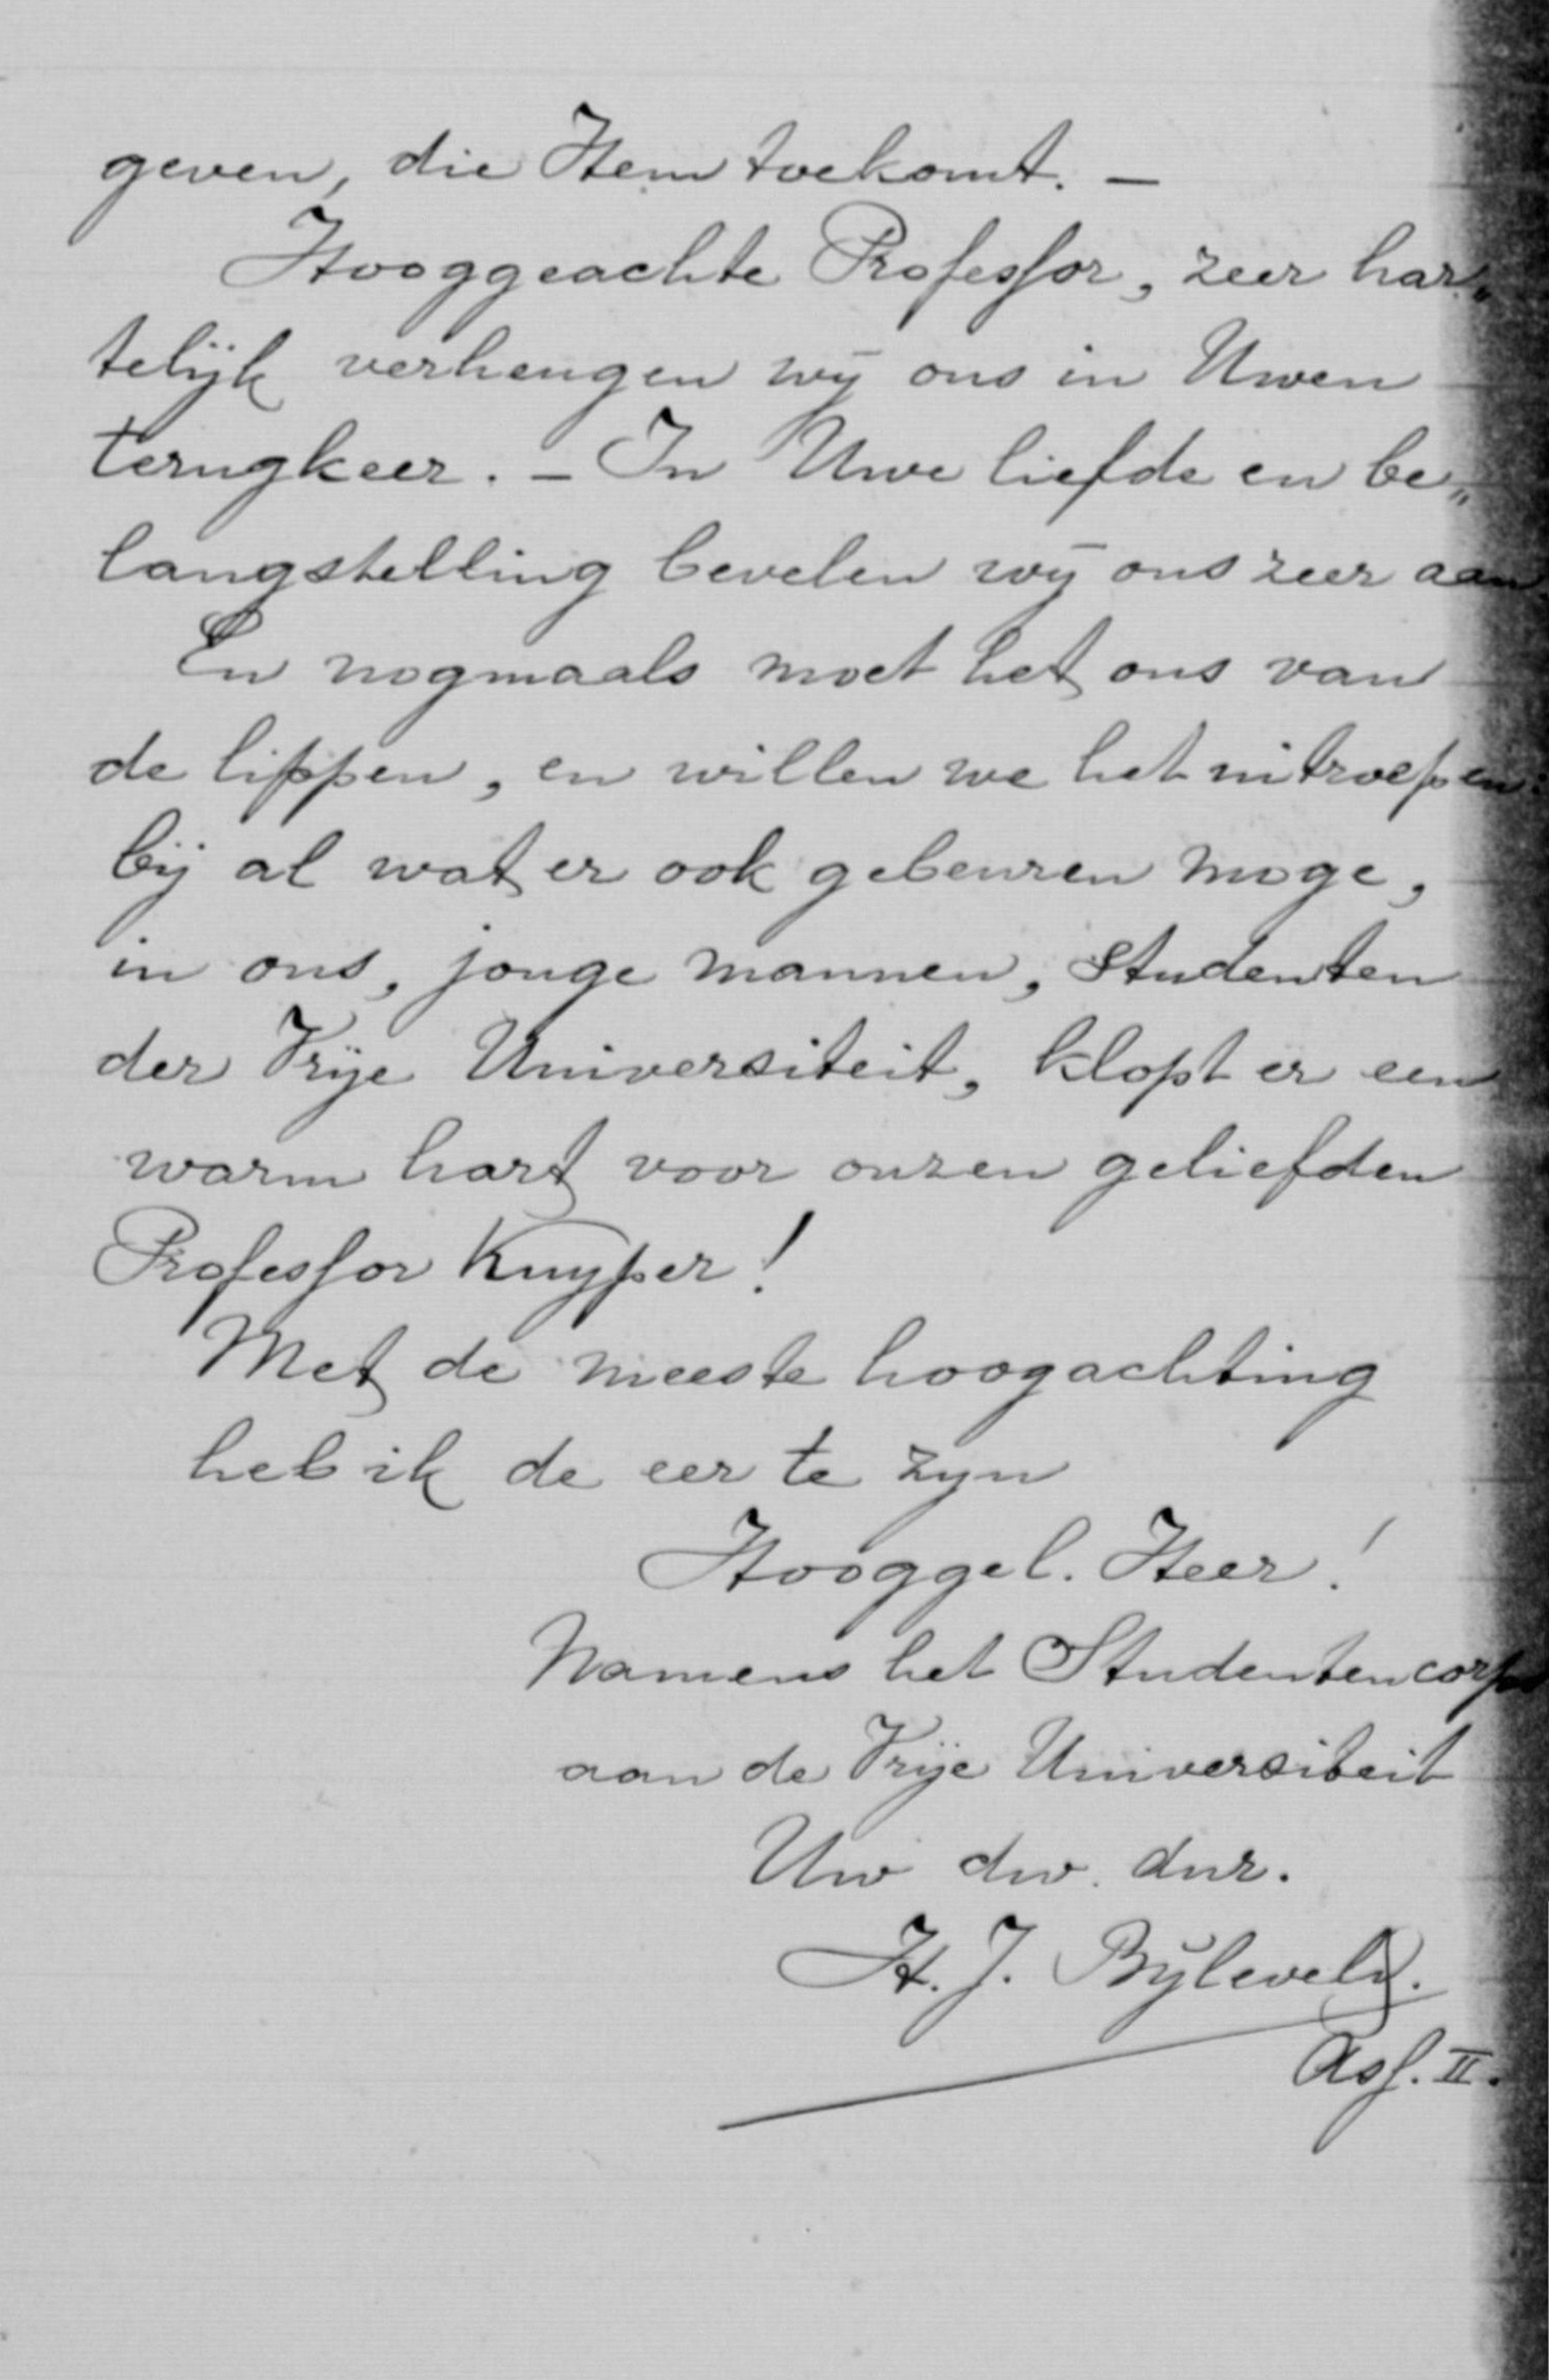 geven, die Hem toekomt. —
Hooggeachte Professor, zeer har„
telijk verheugen wij ons in Uwen
terugkeer. — In Uwe liefde en be„
langstelling bevelen wij ons zeer aan
En nogmaals moet het ons van
de lippen, en willen we het uitroepen:
bij al wat er ook gebeuren moge,
in ons, jonge mannen, Studenten
der Vrije Universiteit, klopt er een
warm hart voor onzen geliefden
Professor Kuyper!
Met de meeste hoogachting
heb ik de eer te zijn
Hooggel. Heer!
Namens het Studentencorps
aan de Vrije Universiteit
Uw dw. dnr.
H. J. Bijleveld.
Ass. II.